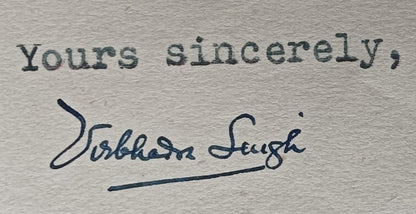 Yours sincerely,
Virbhadra Singh